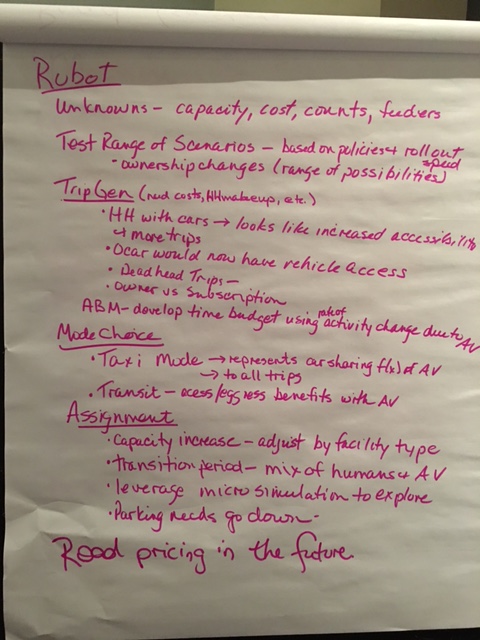 Rubot
Unknowns - capacity, cost, counts, feeders
Test Range of Scenarios - based on policies + rollout speed
· ownership changes (range of possibilities)
Trip Gen (need costs, HH makeup, etc.)
· HH with cars → looks like increased accessibility
+ more trips
· 0car would now have vehicle access
· Deadhead Trips -
· Owner vs Subscription
ABM - develop time budget using rate of activity change due to AV
Mode Choice
· Taxi Mode → represents carsharing f(x) of AV
→ to all trips
· Transit - acess/egress benefits with AV
Assignment
· Capacity increase - adjust by facility type
· Transition period - mix of humans + AV
· leverage micro simulation to explore
· Parking needs go down -
Road pricing in the future